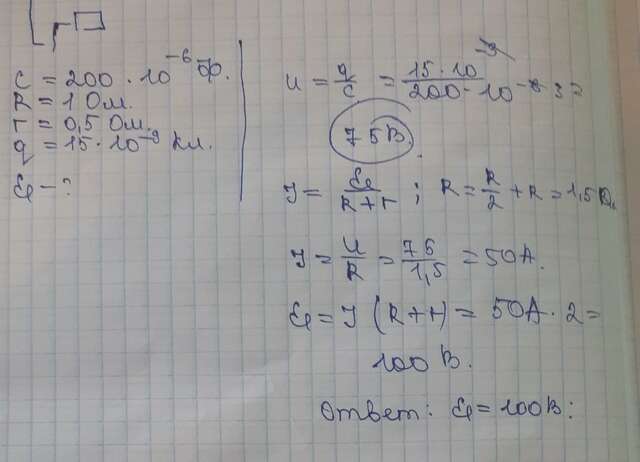 C = 200 · 10⁻⁶ Ф.
R = 1 Ом.
r = 0,5 Ом.
q = 15 · 10⁻⁹ Кл.
ℰ – ?
U = q/C = 15 · 10 / 200 · 10 =
75В.
J = ℰ/R+r ; R = R/2 + R = 1,5
J = U/R = 75/1,5 = 50А.
ℰ = J (R+r) = 50А · 2 =
100 В.
Ответ: ℰ = 100В: